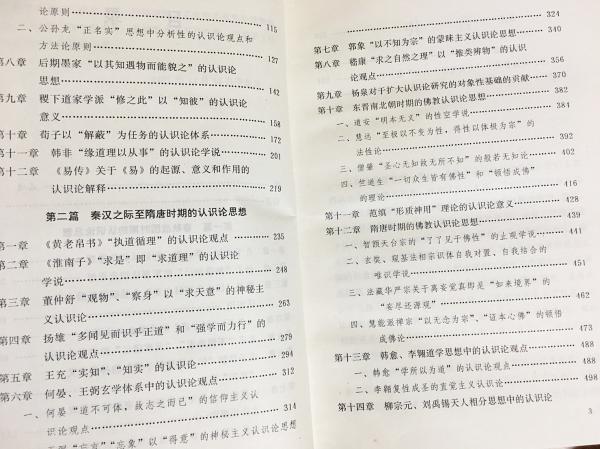 论原则 115
二、公孙龙“正名实”思想中分析性的认识论观点和
方法论原则 127
第八章 后期墨家“以其知遇物而能貌之”的认识论
思想 142
第九章 稷下道家学派“修之此”以“知彼”的认识论
意义 158
第十章 荀子以“解蔽”为任务的认识论体系 172
第十一章 韩非“缘道理以从事”的认识论学说 201
第十二章 《易传》关于《易》的起源、意义和作用的
认识论解释 219
第二篇 秦汉之际至隋唐时期的认识论思想
第一章 《黄老帛书》“执道循理”的认识论观点 235
第二章 《淮南子》“求是”即“求道理”的认识论
学说 248
第三章 董仲舒“观物”、“察身”以“求天意”的神秘主
义认识论 263
第四章 扬雄“多闻见而识乎正道”和“强学而力行”的
认识论观点 279
第五章 王充“实知”、“知实”的认识论 294
第六章 何晏、王弼玄学体系中的认识论观点 312
一、何晏“道不可体，故志之而已”的信仰主义认
识论观点 314
“忘言”“忘象”以“得意”的神秘主义认识论思想
324
第七章 郭象“以不知为宗”的蒙昧主义认识论思想 340
第八章 嵇康“求之自然之理”以“推类辨物”的认识
论观点 356
第九章 杨泉对于扩大认识论研究的对象性基础的贡献 370
第十章 东晋南北朝时期的佛教认识论思想 382
一、道安“明本无义”的性空学说 384
二、慧远“至极以不变为性，得性以体极为宗”的
法性论 392
三、僧肇“圣心无知故无所不知”的般若无知论 402
四、竺道生“一切众生皆有佛性”和“顿悟成佛”
的理论 416
第十一章 范缜“形质神用”理论的认识论意义 428
第十二章 隋唐时期的佛教认识论思想 439
一、智𫖮天台宗的“了了见于佛性”的止观学说 441
二、玄奘、窥基法相宗识体自我对置、自我结合的
唯识学说 451
三、法藏华严宗关于离妄觉真即是“如来境界”的
“妄尽还源观” 462
四、慧能派禅宗“以无念为宗”、“证本心佛”的顿悟
成佛论 473
第十三章 韩愈、李翱道学思想中的认识论观点 488
一、韩愈“学所以为道”的认识论观点 488
二、李翱复性成圣的直觉主义认识论 498
第十四章 柳宗元、刘禹锡天人相分思想中的认识论
3